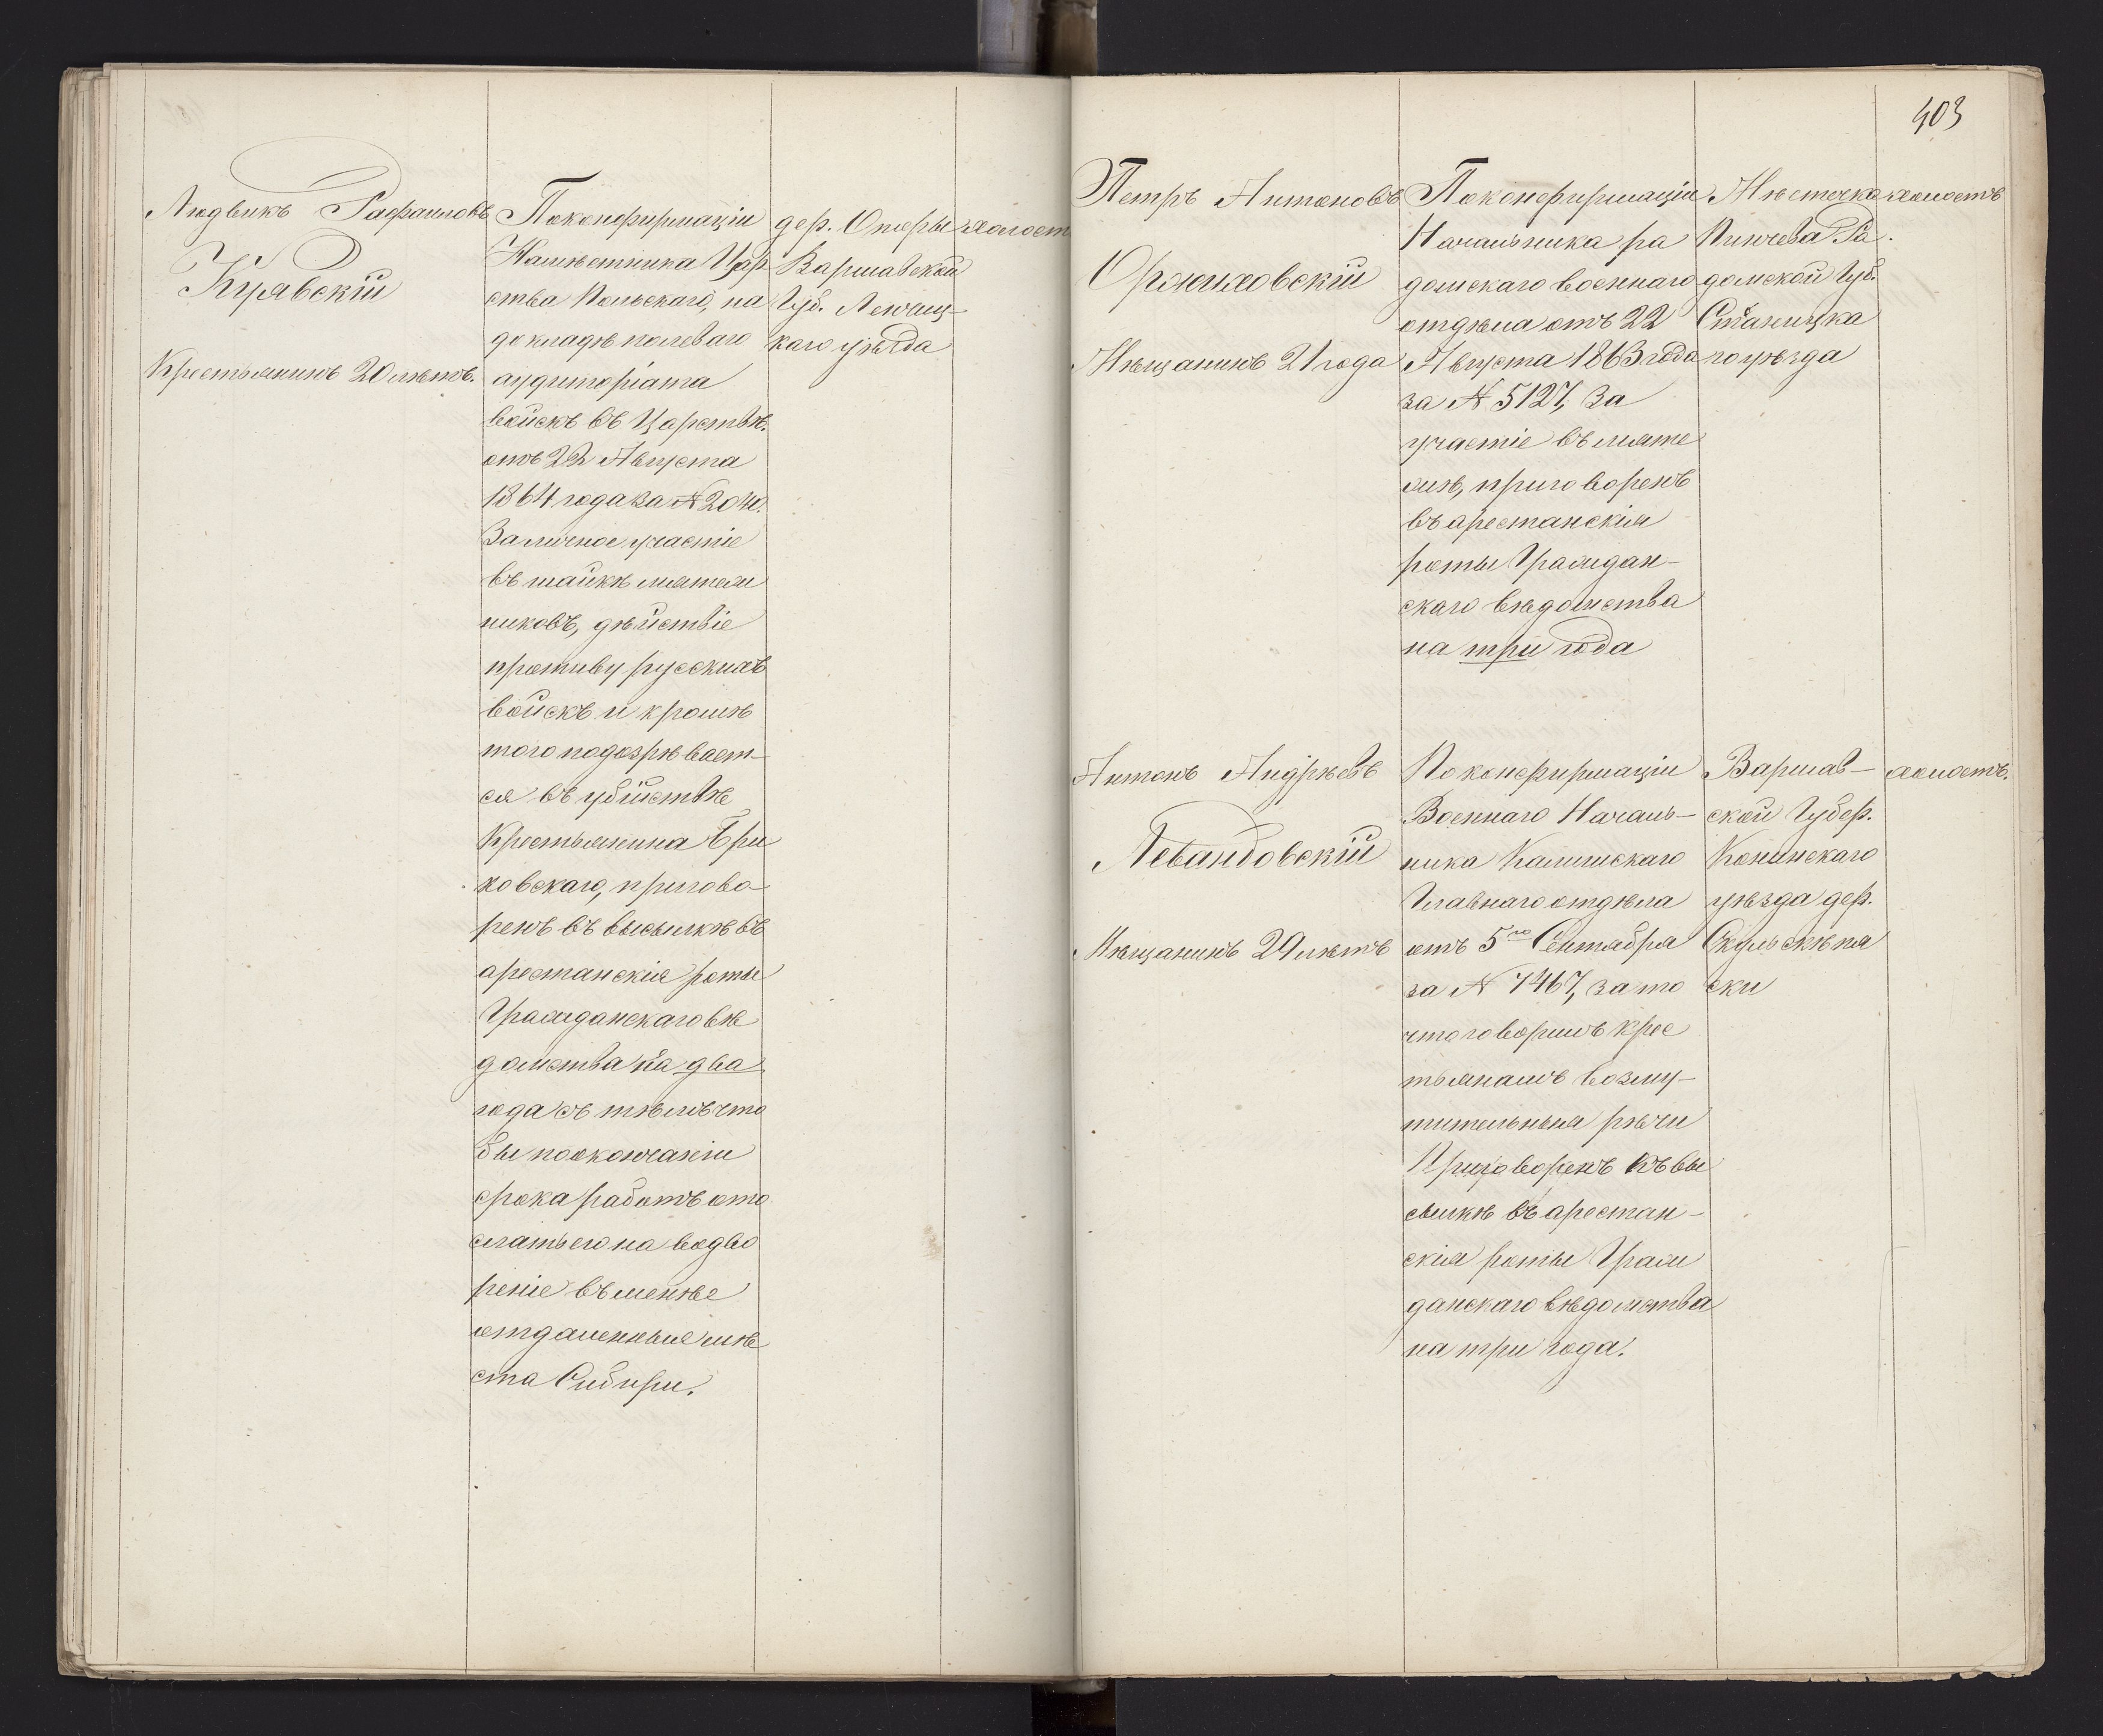 Людвикъ Рафаиловъ
Куявскій
Крестьянинъ 20 лѣтъ.
По конфирмаціи
Намѣстника Цар
ства Польскаго, на
докладѣ полеваго
аудиторіата
войскъ въ Царствѣ.
отъ 22 Августа
1864 года за №
За личное участіе
въ шайкѣ мятеж
никовъ, дѣйствіе
противу русскихъ
войскъ и кромѣ
того подозрѣвает-
ся въ убійствѣ
Крестьянина
ховскаго, пригово-
ренъ въ высылкѣ въ
арестанскія роты
Гражданскаго вѣ
домства на два
года съ тѣмъ что
бы по окончаніи
срока работъ ото
слать его на водво
реніе въ менѣе
отдаленныя мѣ
ста Сибири.
дер.
Варшавской
Губ. Ленчиц-
каго уѣзда
холост
403
Петръ Антоновъ
Оржиховскій
Мѣщанинъ 21 года
По конфирмаціи
Начальника ра
домскаго военнаго
отдѣла отъ 22
Августа 1863 года
за № 5127, За
участіе въ мяте
жѣ, приговоренъ
въ арестанскія
роты Граждан-
скаго вѣдомства
на три года
Мѣстечка
Пинчева Ра.
домской Губ.
Стажицка
го уѣзда
холостъ
Антонъ Андрѣевъ
Левандовскій
Мѣщанинъ 29 лѣтъ
По конфирмаціи
Военнаго Началь-
ника Калишскаго
Главнаго отдѣла
отъ 5го Сентября
за № 7467, за то
что говорилъ крес
тьянамъ возму-
тительныя рѣчи
Приговоренъ къ вы
сылкѣ въ арестан-
скія роты Граж
данскаго вѣдомства
на три года.
Варшав-
ской Губер.
Конинскаго
уѣзда дер.
ски
холостъ.